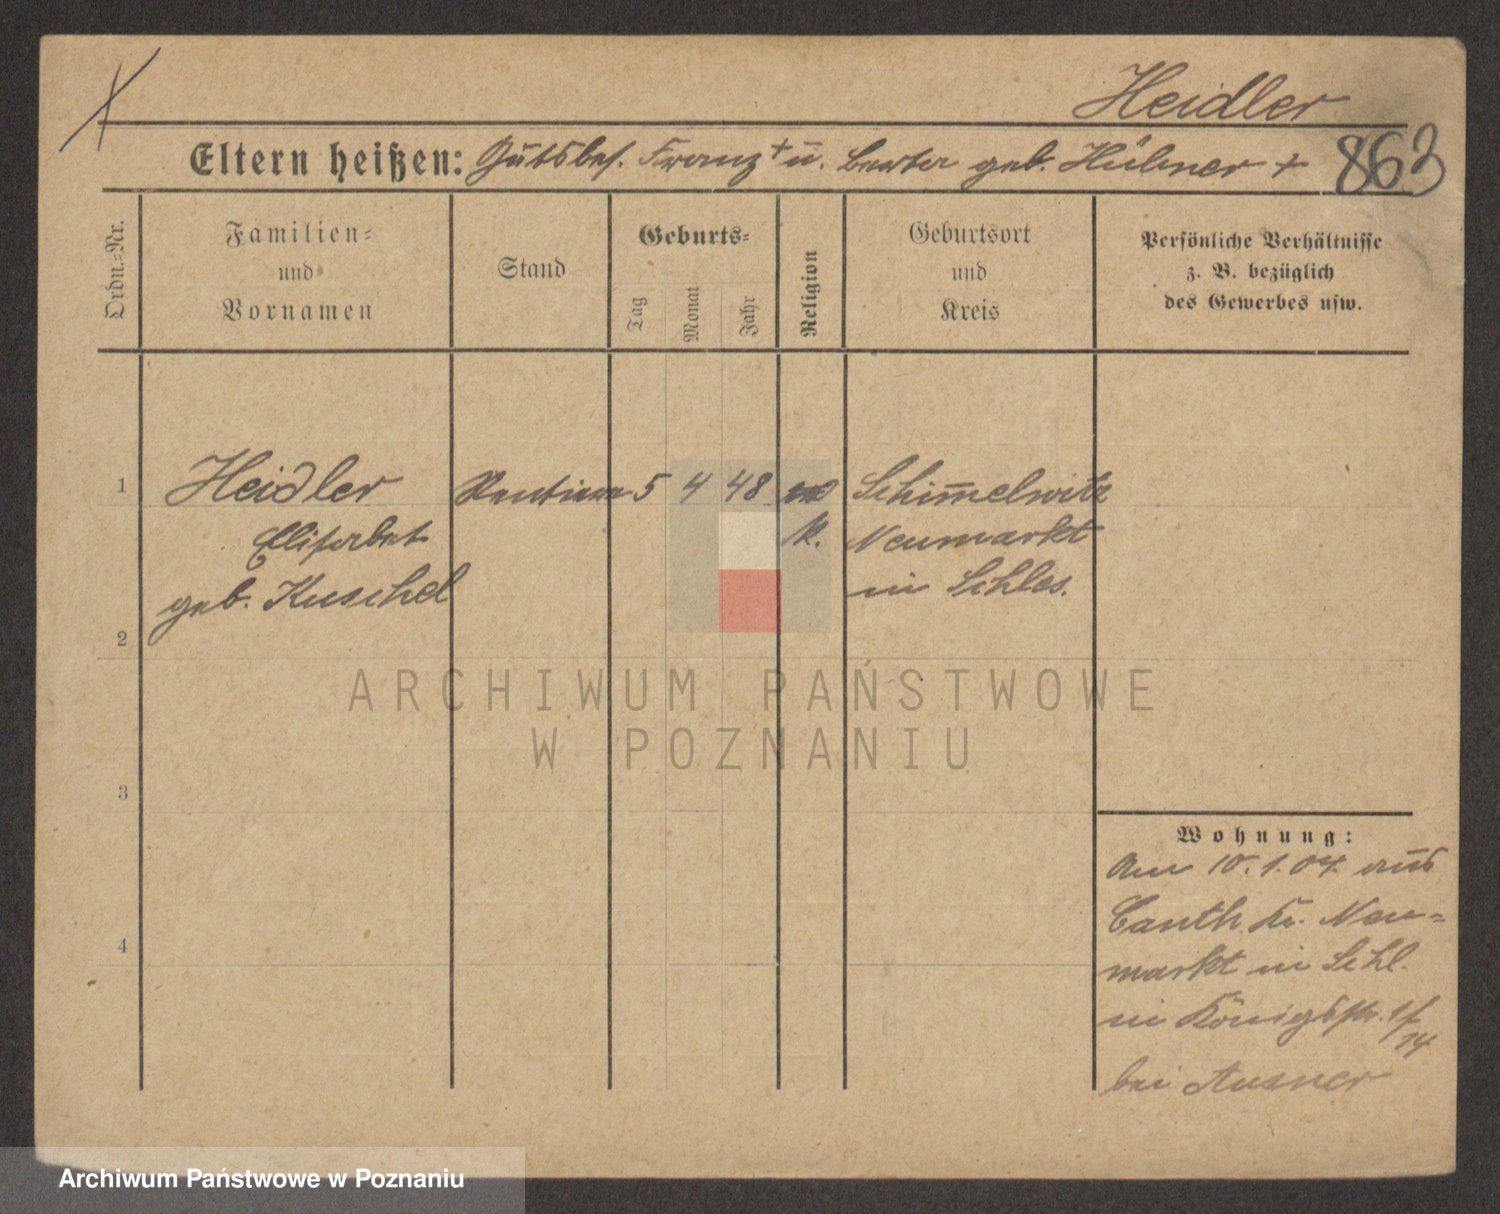 Heidler
Eltern heißen: Gutsbes. Franz + u. Berta geb. Hübner +
863
Ordn.-Nr.
Familien-
und
Vornamen
Stand
Geburts-
Tag
Monat
Jahr
Religion
Geburtsort
und
Kreis
Persönliche Verhältnisse
z. B. bezüglich
des Gewerbes usw.
1
Heidler
Rentiere
5
4
48
Schim̅elwitz
Elisabet
k.
Neumarkt
geb. Kuschel
in Schles.
2
ARCHIWUM PAŃSTWOWE
W POZNANIU
3
Wohnung:
Am 10.1.04. aus
Canth Kr. Neu-
4
markt in Schl.
in Königsstr. 1/
14
bei
Archiwum Państwowe w Poznaniu